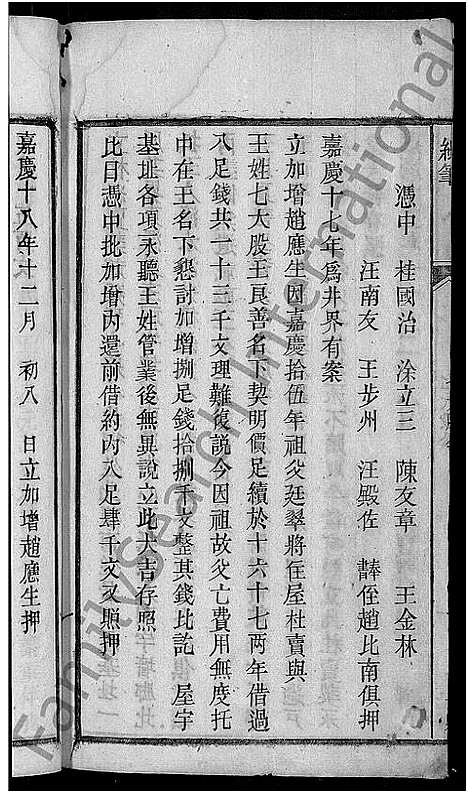 憑中 桂國治 涂立三 陳友章 王金林
汪南友 王步州 汪殿佐 侄趙比南俱押
嘉慶十七年爲井界有案
立加增趙應生因嘉慶拾伍年祖父廷翠將住屋杜賣與
王姓七大股王良善名下契明價足續於十六十七兩年借過
八足錢共一十三千文理難復說今因祖故父亡費用無度托
中在王名下懇討加增捌足錢拾捌千文整其錢比訖 屋宇
基址各項永聽王姓管業後無異說立此大吉存照
比日憑中批加增內還前借約內八足肆千文又照押
嘉慶十八年十二月 初八 日立加增趙應生押
FamilySearch International